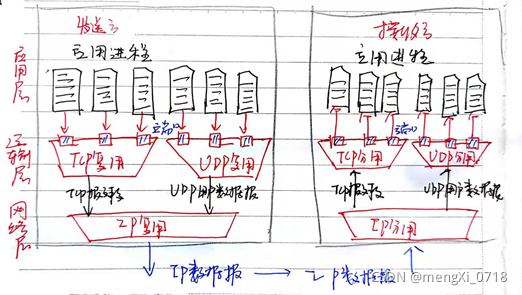 发送方
接收方
应用进程
应用进程
应用层
端口
端口
运输层
TCP复用
UDP复用
TCP分用
UDP分用
TCP报文段
UDP用户数据报
TCP报文段
UDP用户数据报
网络层
IP复用
IP分用
IP数据报
IP数据报
CSDN @mengXi_0718